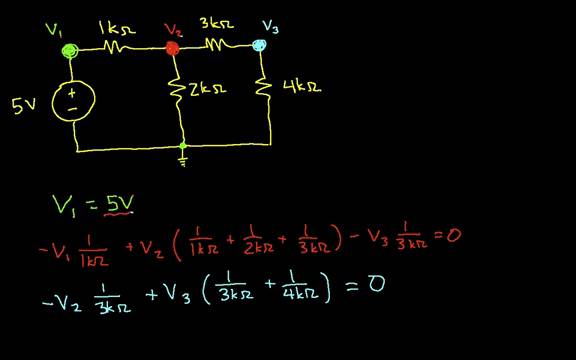 V₁ 1kΩ V₂ 3kΩ V₃
5V + − 2kΩ 4kΩ
V₁ = 5V
-V₁ 1/1kΩ + V₂ ( 1/1kΩ + 1/2kΩ + 1/3kΩ ) - V₃ 1/3kΩ = 0
-V₂ 1/3kΩ + V₃ ( 1/3kΩ + 1/4kΩ ) = 0